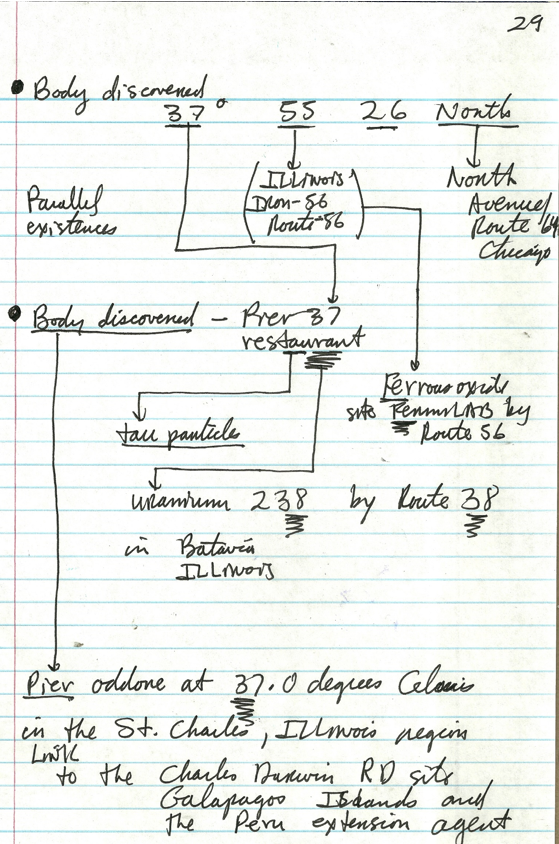 29
Body discovered
37° 55 26 North
(Illinois
Iron-56
Route-56)
North
Avenue/
Route 64
Chicago
Parallel
existences
Body discovered - Pier 37
restaurant
Ferrous oxide
site FermiLAB by
Route 56
tau particles
uranium 238 by Route 38
in Batavia
ILLINOIS
Pier oddone at 37.0 degrees Celsius
in the St. Charles, Illinois region
Link
to the Charles Darwin RD site
Galapagos Islands and
the Peru extension agent